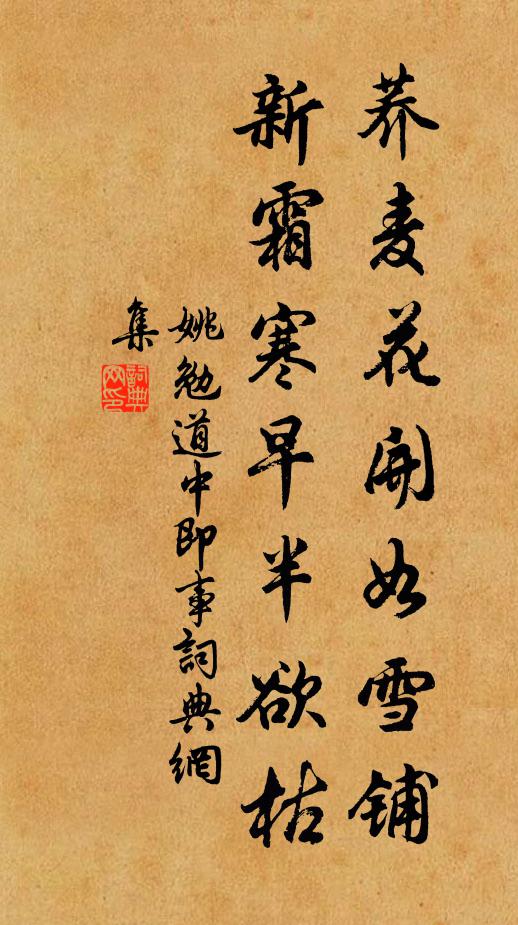 荞麦花開如雪铺
新霜寒早半欲枯
姚勉道中即事詞典網
集
詞典网印